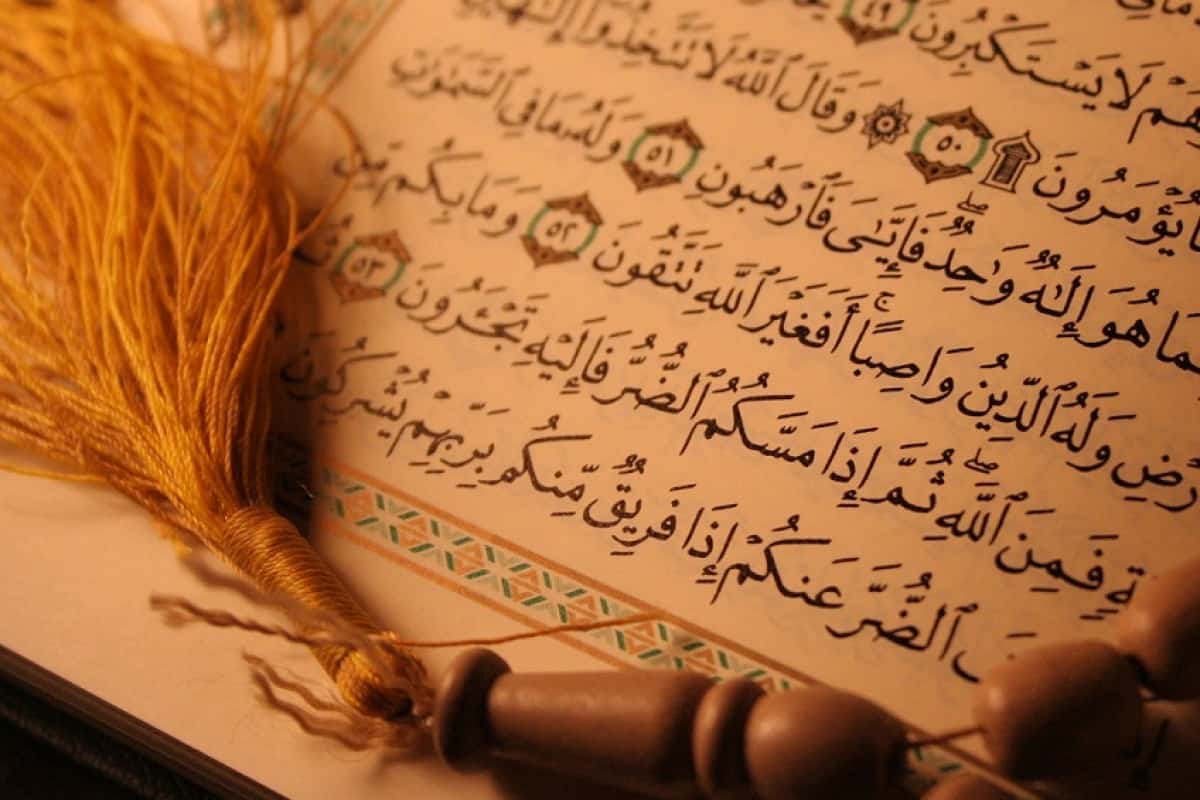 هُمْ لَا يَسْتَكْبِرُونَ ٤٩
يُؤْمَرُونَ ۩ ٥٠ ۞ وَقَالَ ٱللَّهُ لَا تَتَّخِذُوٓا۟ إِلَٰهَيْنِ
هُوَ إِلَٰهٌ وَٰحِدٌ ۖ فَإِيَّٰيَ فَٱرْهَبُونِ ٥١ وَلَهُۥ مَا فِي ٱلسَّمَٰوَٰتِ
رْضِ وَلَهُ ٱلدِّينُ وَاصِبًا ۚ أَفَغَيْرَ ٱللَّهِ تَتَّقُونَ ٥٢ وَمَا بِكُم مِّن
ةٍ فَمِنَ ٱللَّهِ ۖ ثُمَّ إِذَا مَسَّكُمُ ٱلضُّرُّ فَإِلَيْهِ تَجْـَٔرُونَ ٥٣
ٱلضُّرَّ عَنكُمْ إِذَا فَرِيقٌ مِّنكُم بِرَبِّهِمْ يُشْرِكُونَ